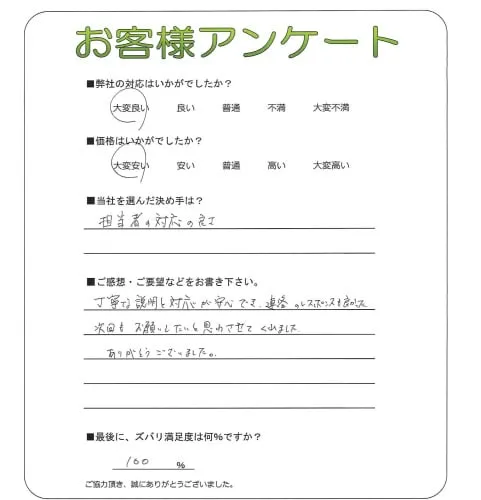 お客様アンケート
■弊社の対応はいかがでしたか？
大変良い 良い 普通 不満 大変不満
■価格はいかがでしたか？
大変安い 安い 普通 高い 大変高い
■当社を選んだ決め手は？
担当者の対応の良さ
■ご感想・ご要望などをお書き下さい。
丁寧な説明と対応が安心です。連絡のレスポンスも良かった
次回もお願いしたいと思わさせてくれました。
ありがとうございました。
■最後に、ズバリ満足度は何％ですか？
100 ％
ご協力頂き、誠にありがとうございました。